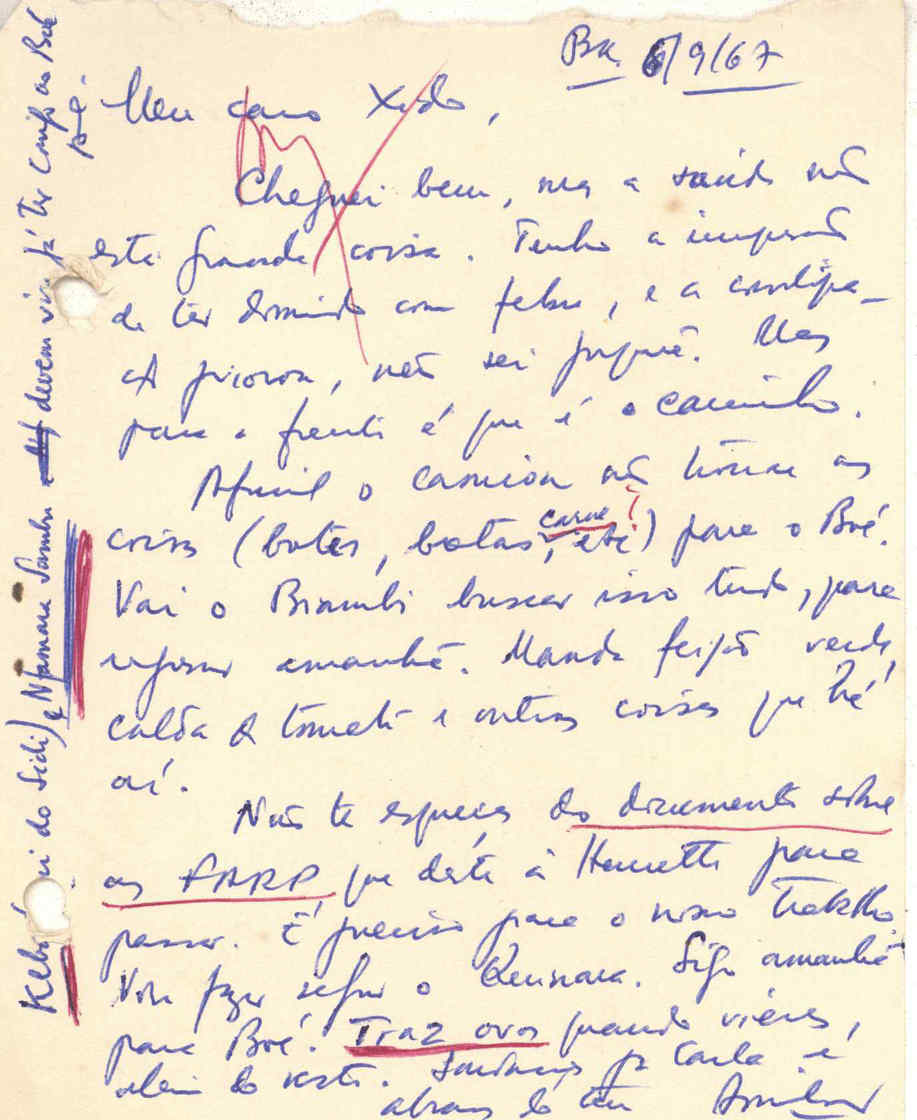 Bk. 6/9/67
Meu caro Xisto,
Cheguei bem, mas a saúde não
está grande coisa. Tenho a impressão
de ter dormido com febre, e a constipa-
piorou, não sei porquê. Mas
para a frente é que é o caminho.
Afinal o camion não trouxe as
coisas (botes, botas, carne!, etc) para o Boé.
Vai o Biambi buscar isso tudo, para
regressar amanhã. Manda feijão verde
calda de tomate e outras coisas que há
aí.
Não te esqueças do documento sobre
as FARP que deste à Henriette para
passar. É preciso para o nosso trabalho.
Vou fazer seguir o Quinara. Sigo amanhã
para Boé. Traz ovos quando vieres,
além do resto. Saudações pr Carla e
abraço do teu Amílcar
do Sidi) e N'famara Sambu devem vir já ter comigo ao Boé
p-g-